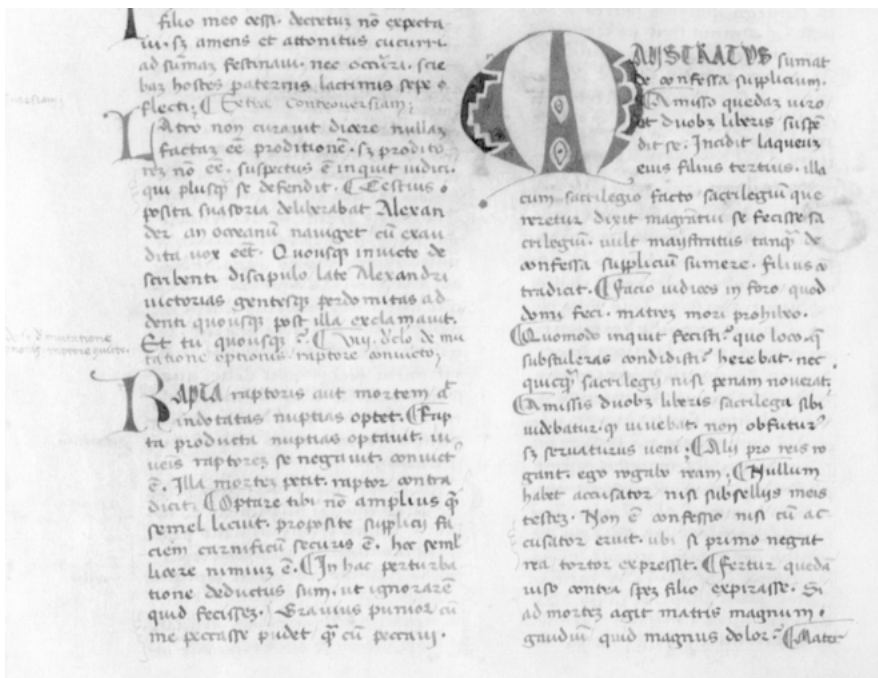 filio meo cessi. decretuz nō expecta
ui. sz amens et attonitus cucurri.
ad sūmaz festinaui. nec occūri. scie
baz hostes paternis lacrimis sepe
flecti. Extra controuersiam;
LAtro non curauit dicere nullaz
factaz eē proditionē. sz prodito
rez nō eē. suspectus ē inquit iudici.
qui plusq̄ se defendit. Cestius
posita suasoria deliberabat Alexan
der an oceanū nauiget cū exau
dita uox eēt. Quousq inuicte de
scribenti discipulo late Alexandri
uictorias gentesq perdomitas ad
denti quousq post illa exclamauit.
Et tu quousq de
tatione optionis raptore conuicto;
RAPTA raptoris aut mortem
indotatas nuptias optet. Rap
ta producta nuptias optauit.
raptorez se negauit. conuict
ē. Illa mortez petit. raptor contra
dicit. Optare tibi nō amplius q̄
semel licuit. proposite supplicij fa
ciem carnificū securis ē. hoc seml
licere nimiuz ē. In hac perturba
tione deductus sum. ut ignorarē
quid fecissez. Grauius punior cū
me peccasse pudet q̄ cū peccaui.
MAYSTRATVS sumat
de confessa supplicium.
Amisso quedaz uiro
et duobz liberis suspē
dit se. Incidit laqueuz
eius filius tertius. illa
cum sacrilegio facto sacrilegiū que
reretur dixit magrātui se fecisse sa
crilegiū. uult maystratus tanq̄ de
confessa suppliciū sumere. filius
tradicit. Facio iudices in foro quod
domi feci. matrez mori prohibeo.
Quomodo inquit fecisti. quo loco.
substuleras condidisti herebat. nec
quicq̄ sacrilegij nisi penam nouerat.
Amissis duobz liberis sacrilega sibi
uidebatur. q uiuebat. non obfutur
sz seruaturus ueni. Alij pro reis ro
gant. ego rogabo ream. Nullum
habet accusator nisi subsellijs meis
testez. Non ē confessio nisi cū ac
cusator eruit. ubi si primo negat
rea tortor expressit. Fertur quedā
uiso contra spez filio expirasse. Si
ad mortez agit matris magnum
gaudiū quid magnus dolor. Mater